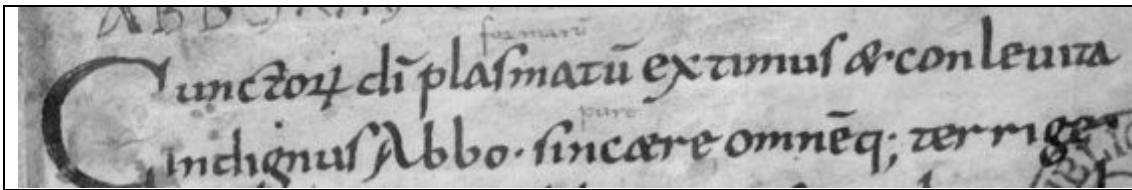 formarū
Cunctoꝝ dī plasmatū extimus & con leuita
pure
indignus Abbo · sincære omnēq; terrige